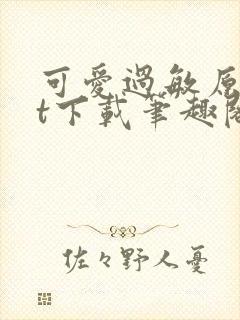 可愛過敏原
t下載筆趣閣
佐々野人憂